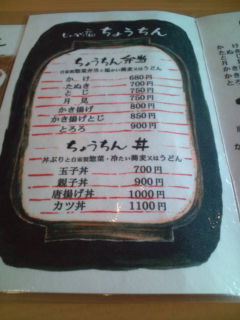 ちょうちん
ちょうちん弁当
白御飯惣菜弁当と温かい蕎麦又はうどん
かけ 680円
たぬき 700円
とじ 750円
月見 750円
かき揚げ 800円
かき揚げとじ 850円
とろろ 900円
ちょうちん丼
丼ぶりと自家製惣菜・冷たい蕎麦又はうどん
玉子丼 700円
親子丼 900円
唐揚げ丼 1000円
カツ丼 1100円